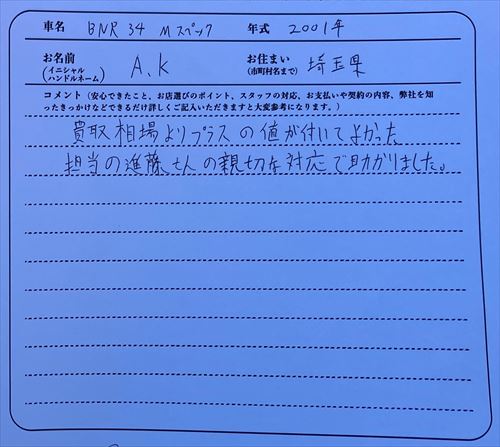 車名 BNR 34 Mスペック 年式 2001年
お名前 (イニシャル ハンドルネーム) A.K お住まい (市町村名まで) 埼玉県
コメント(安心できたこと、お店選びのポイント、スタッフの対応、お支払いや契約の内容、弊社を知
ったきっかけなどできるだけ詳しくご記入いただきますと大変参考になります。)
買取相場よりプラスの値が付いてよかった。
担当の進藤さんの親切な対応で助かりました。